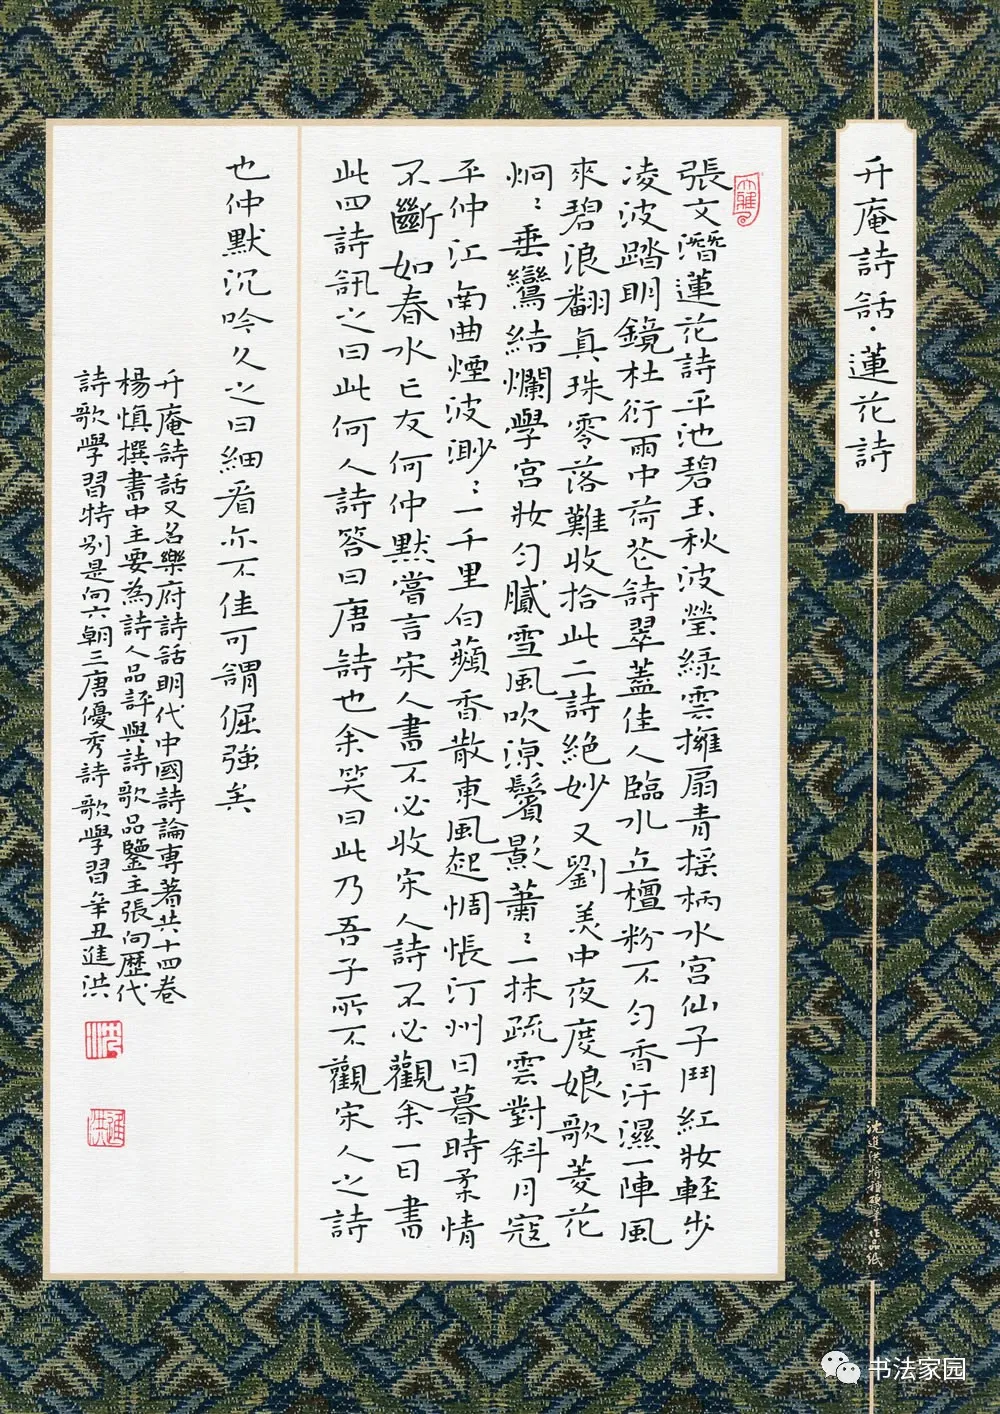 升庵詩話·蓮花詩
張文潛蓮花詩平池碧玉秋波瑩綠雲擁扇青搖柄水宮仙子鬥紅妝輕步
凌波踏明鏡杜衍雨中荷花詩翠蓋佳人臨水立檀粉不勻香汗濕一陣風
來碧浪翻真珠零落難收拾此二詩絕妙又劉美中夜度娘歌菱花
炯:垂鸞結爛學宮妝勻膩雪風吹涼鬢影蕭:一抹疏雲對斜月寇
平仲江南曲煙波渺:一千里白蘋香散東風起惆悵汀州日暮時柔情
不斷如春水亡友何仲默嘗言宋人書不必收宋人詩不必觀余一日書
此四詩訊之曰此何人詩答曰唐詩也余笑曰此乃吾子所不觀宋人之詩
也仲默沉吟久之曰細看亦不佳可謂倔強矣
升庵詩話又名樂府詩話明代中國詩論專著共十四卷
楊慎撰書中主要為詩人品評與詩歌品鑒主張向歷代
詩歌學習特別是向六朝三唐優秀詩歌學習辛丑進洪
沈
進洪
书法家园